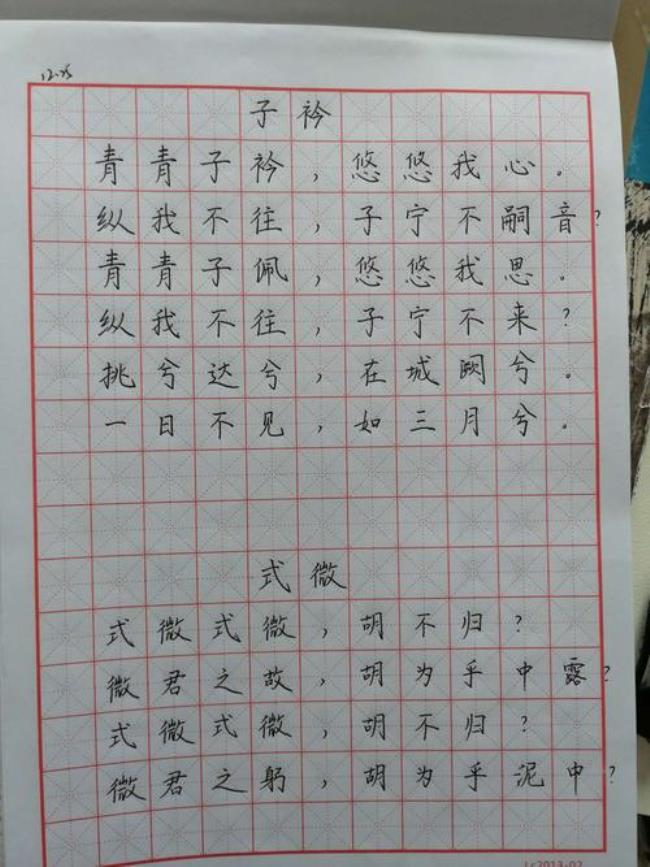 12.25
子衿
青青子衿，悠悠我心。
纵我不往，子宁不嗣音？
青青子佩，悠悠我思。
纵我不往，子宁不来？
挑兮达兮，在城阙兮。
一日不见，如三月兮。
式微
式微式微，胡不归？
微君之故，胡为乎中露？
式微式微，胡不归？
微君之躬，胡为乎泥中？
Lc2013-02